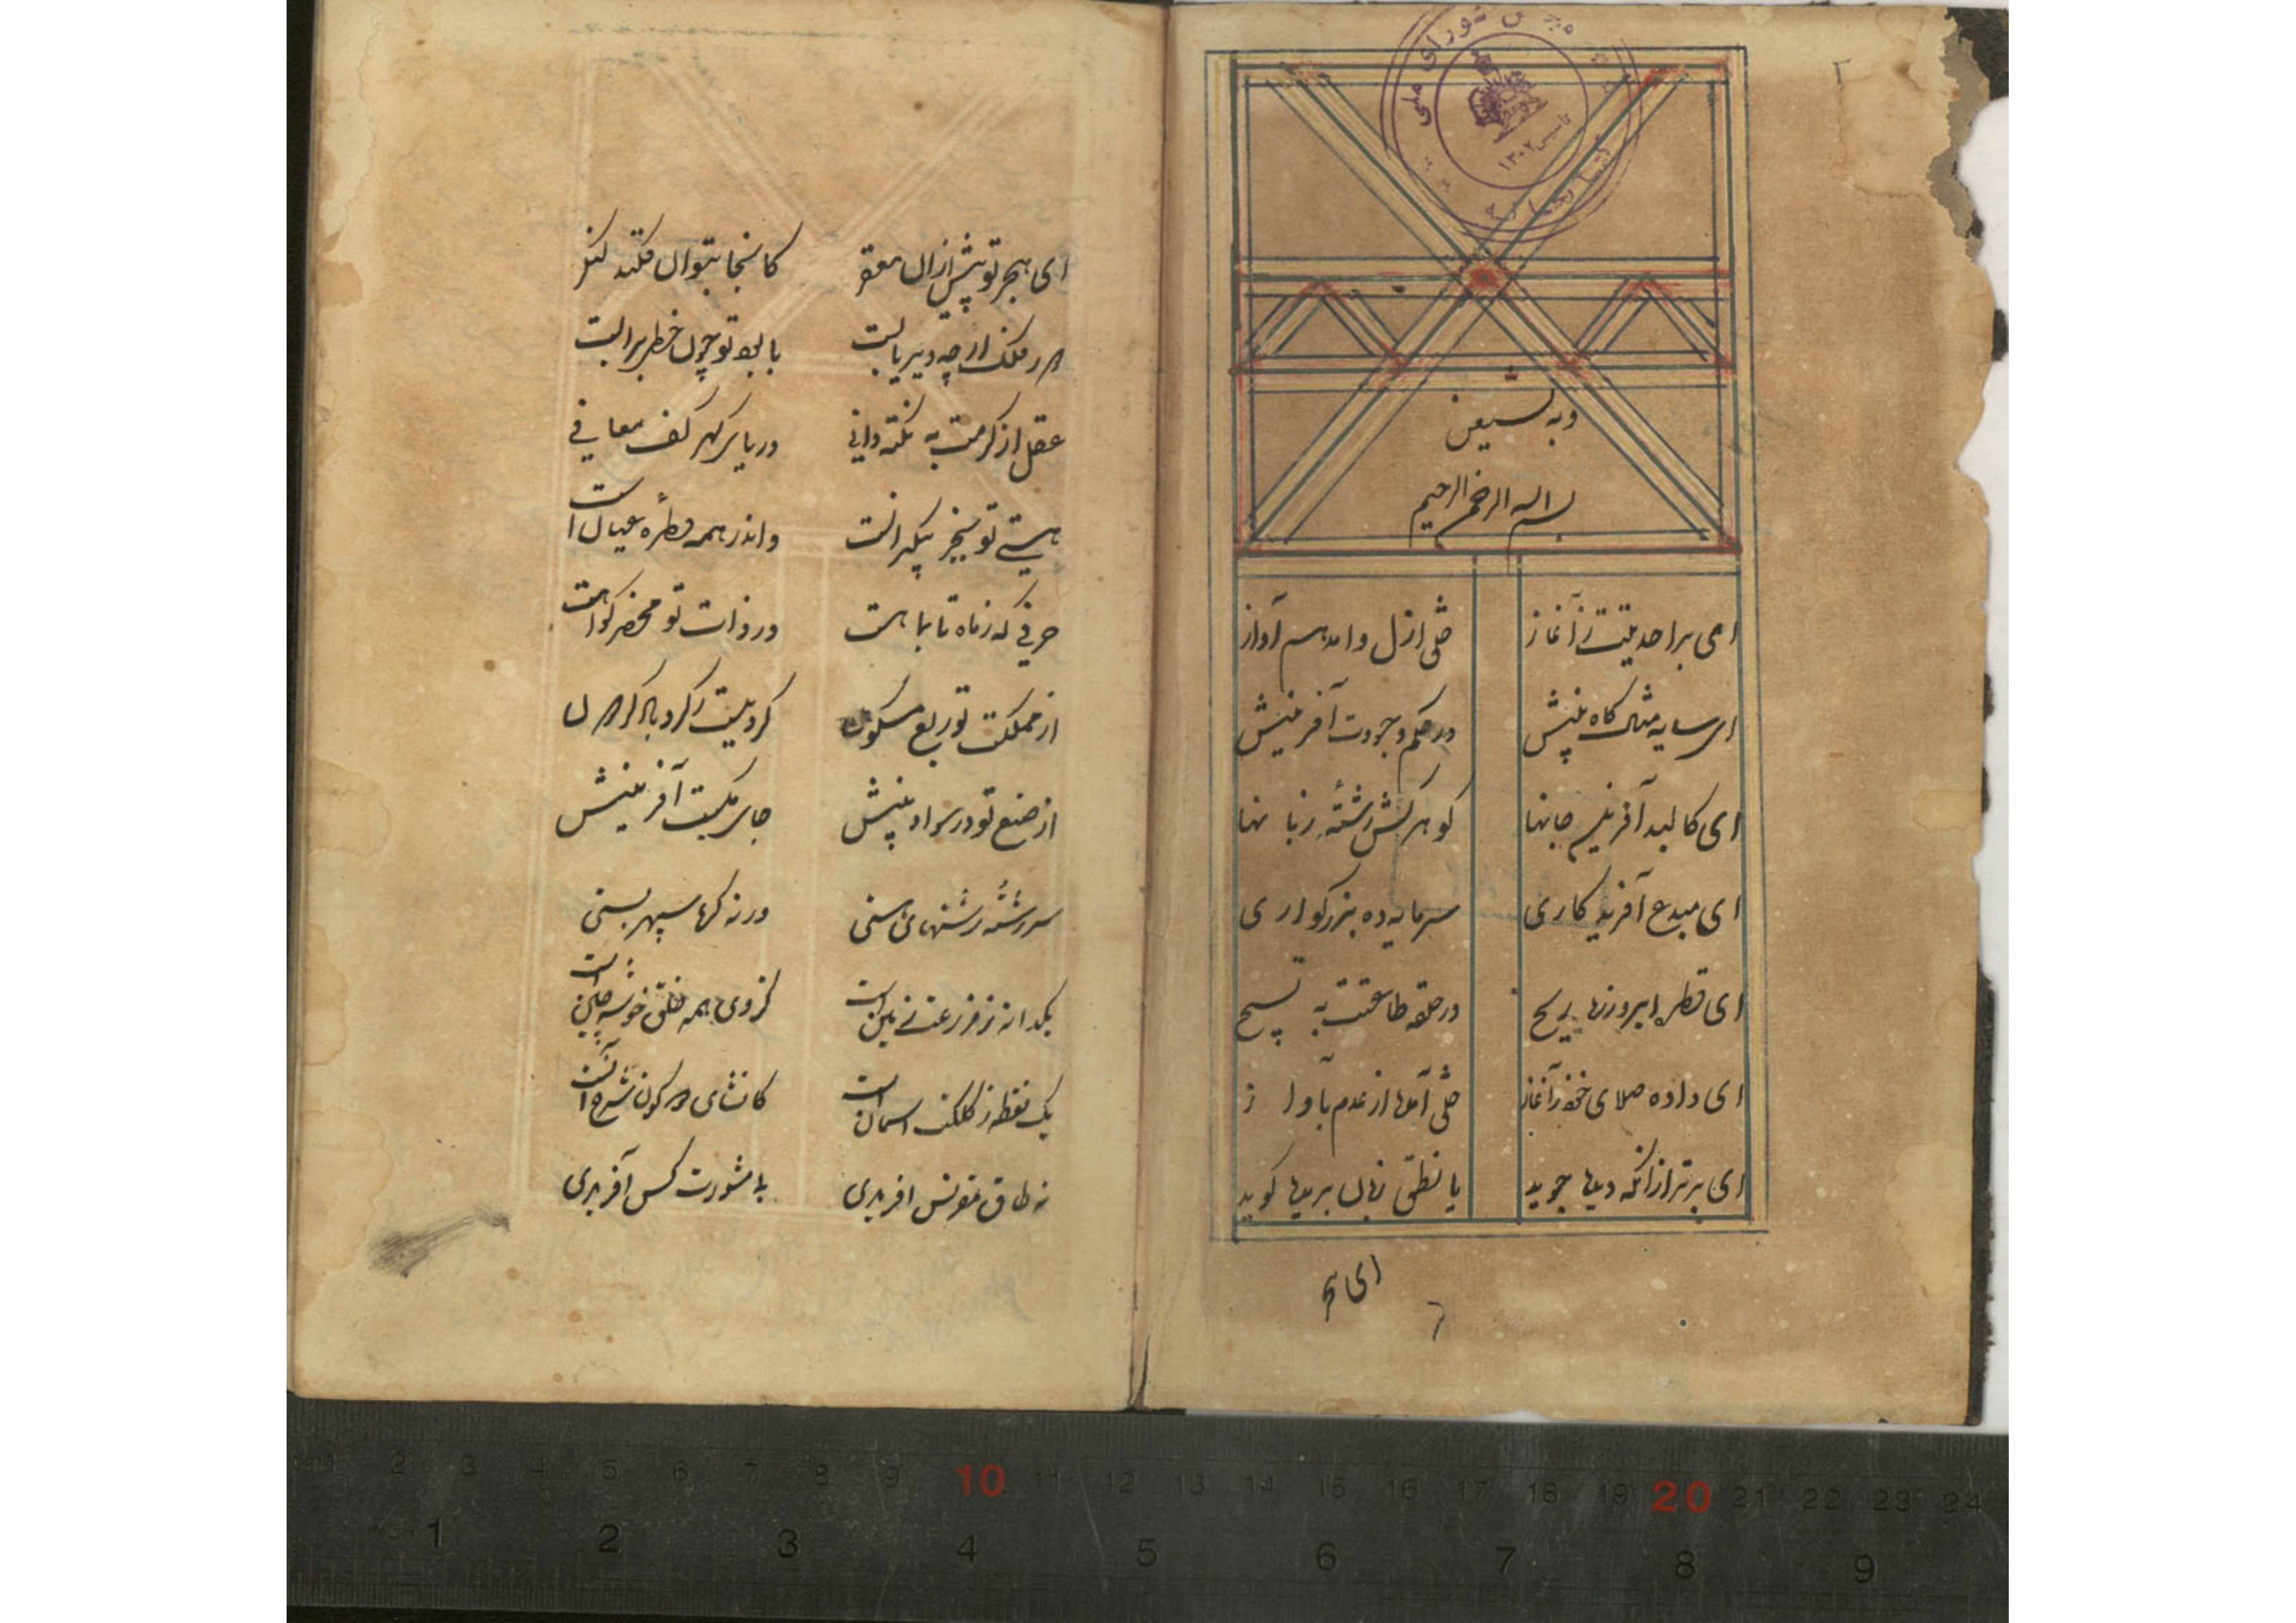 کتابخانه مجلس شورای ملی
تاسیس ۱۳۰۲
۲
وبه نستعین
بسم الله الرحمن الرحیم
ای بر احدیتت ز آغاز خلق ازل و ابد هم آواز
ای سایه مثال گاه بینش در حکم وجودت آفرینش
ای کالبد آفرین جانها گوهرکش رشته زبانها
ای مبدع آفریده کاری سرمایه ده بزرگواری
ای قطره ابر و زنده ریح در حلقه طاعتت به تسبیح
ای داده صلای خود ز آغاز خلق آمده از عدم بآواز
ای برتر از آنکه دیده جوید یا نطق زبان بریده گوید
ای هج
ای هجر تو پیش از آن کانجا بتوان فکند
در ملک ار چه دیر یابست با تو چون خطر بر آبست
عقل از کرمت به نکته دانی دریای گهر کف معانی
هستی تو بیکرانست واندر همه قطره عیان است
حرفی که ز ماه تا بماهست در ذات تو محضر گواهست
از مملکت تو ربع مسکون گردیست ز گرد باد گردون
از صنع تو در سواد بینش جای یکیست آفرینش
سر رشته رشتهای هستی در نه گره سپهر بستی
یکدانه ز مزرعت زمین است کز وی همه خلق خوشه چین است
یک نقطه ز کلکت آسمان است کانشای دو کون شرح آنست
نه طاق مقرنس آفریدی بی مشورت کس آفریدی